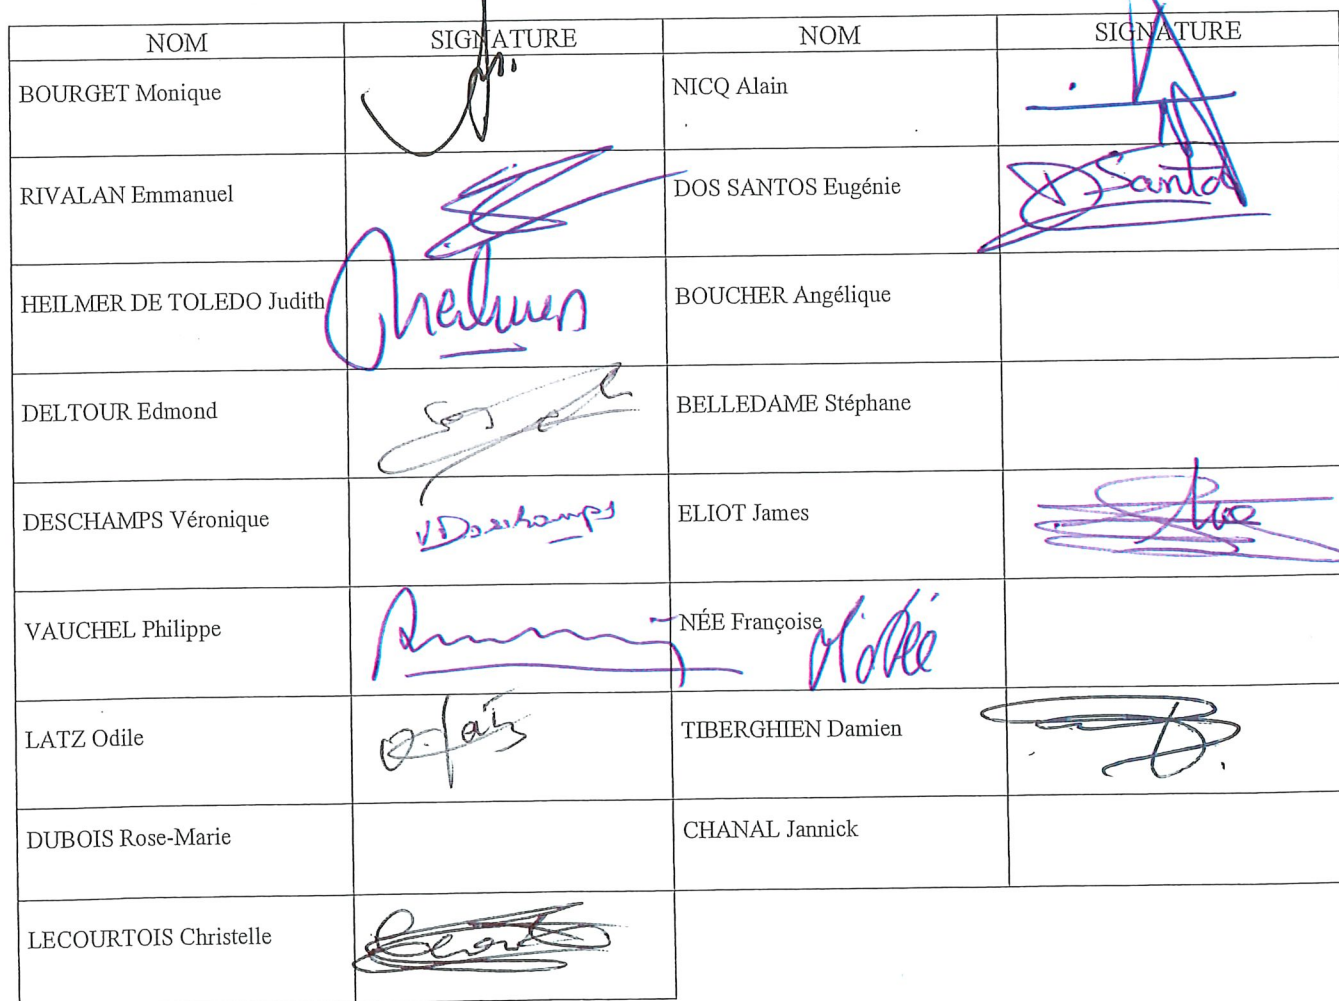 NOM SIGNATURE NOM SIGNATURE
BOURGET Monique NICQ Alain
RIVALAN Emmanuel DOS SANTOS Eugénie
D Santos
HEILMER DE TOLEDO Judith BOUCHER Angélique
DELTOUR Edmond BELLEDAME Stéphane
DESCHAMPS Véronique VDeschamps ELIOT James
VAUCHEL Philippe NÉE Françoise
LATZ Odile O.Latz TIBERGHIEN Damien
DUBOIS Rose-Marie CHANAL Jannick
LECOURTOIS Christelle